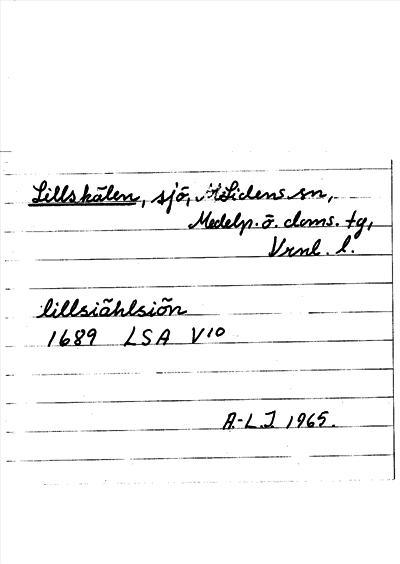 Lillskälen, sjö, Lidens sn,
Medelp. ö. doms. tg,
Vrnl. l.
lillsiählsiön
1689 LSA V10
A.-L.J. 1965.